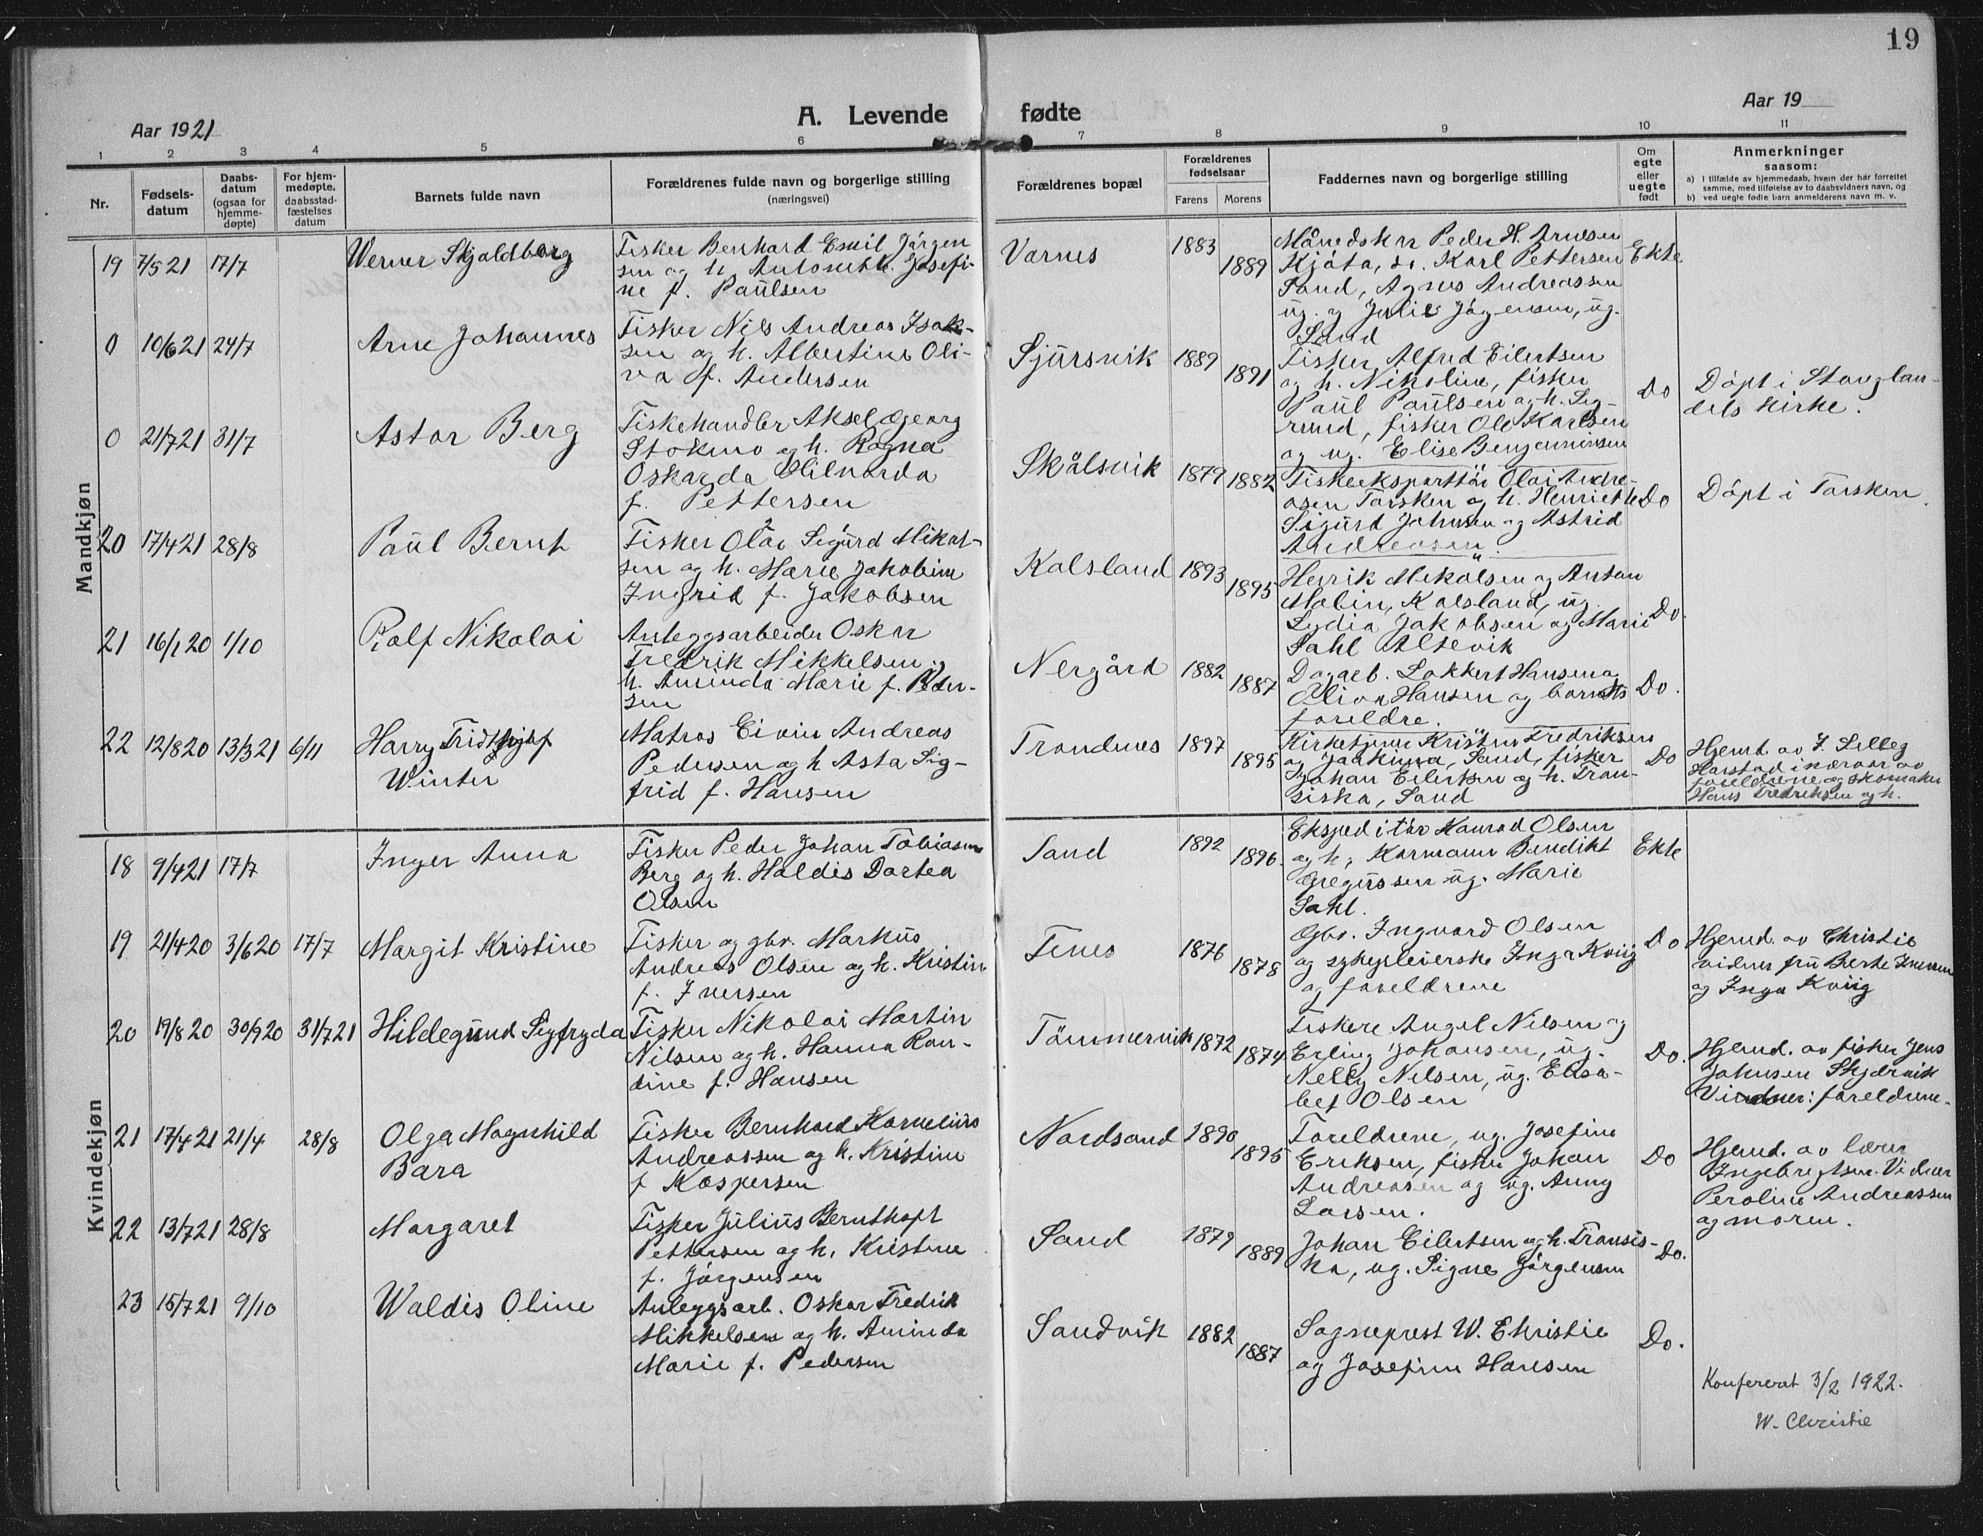 19
Aar 1921
A. Levende fødte
Aar 19
1 2 3 4 5 6 7 8 9 10 11
Nr.
Fødsels-
datum
Daabs-
datum
(ogsaa for
hjemme-
døpte)
For hjem-
medøpte,
daabsstad-
fæstelses
datum
Barnets fulde navn
Forældrenes fulde navn og borgerlige stilling
(næringsvei)
Forældrenes bopæl
Forældrenes
fødselsaar
Farens Morens
Faddernes navn og borgerlige stilling
Om
egte
eller
uegte
født
Anmerkninger
saasom:
a) I tilfælde av hjemmedaab, hvem der har forrettet
samme, med tilføielse av to daabsvidners navn, og
b) ved uegte fødte barn anmelderens navn m. v.
Mandkjøn
19 7/5 21 17/7
Werner Skjoldborg
Fisker Bernhard Emil Jørgen
sen og h. Antonette Josefi-
ne f. Paulsen
Varnes
1883
1889
Månedskar Peder H. Arnesen
Kjøta, do. Karl Pettersen
Sand, Agnes Andreassen
ug. og Julie Jørgensen, ug.
Sand
Ekte
0 10/6 21 24/7
Arne Johannes
Fisker Nils Andreas Isak-
sen og h. Albertine Oli-
va f. Andersen
Sjursvik
1889
1891
Fisker Alfred Eilertsen
og h. Nikoline, fisker
Paul Paulsen og h. Sig-
rund, fisker Ole Karlsen
og ug. Elise Benjaminsen
Do
Døpt i Stonglan-
dets kirke.
0 21/7 21 31/7
Astor Berg
Fiskehandler Aksel Georg
Stokmo og h. Ragna
Oskarda Hilvarda
f. Pettersen
Skålsvik
1879
1882
Fiskeeksportør Olai Andre-
asen Torsken og h. Henriette
Sigurd Johnsen og Astrid
Andreasen.
Do
Døpt i Torsken.
20 17/4 21 28/8
Paul Bernt
Fisker Olai Sigurd Mikal-
sen og h. Marie Jakobine
Ingrid f. Jakobsen
Kalsland
1893
1895
Henrik Mikalsen og Anton
Malin, Kalsland, ug.
Lydia Jakobsen og Marie
Dahl Altevik
Do.
21 16/1 20 1/10
Rolf Nikolai
Anleggsarbeider Oskar
Fredrik Mikkelsen og
h. Aminda Marie f. Peder-
sen
Nergård
1882
1887
Dagarb. Lokkert Hansen og
Oliva Hansen og barnets
foreldre.
Do.
22 12/8 20 13/3 21 6/11
Harry Fridthjof
Winter
Matros Eivin Andreas
Pedersen og h Asta Sig-
frid f. Hansen
Trondnes
1897
1895
Kirketjener Kristen Fredriksen
og Jaakima, Sand, fisker
Johan Eilertsen og h. Fran-
siska, Sand
Do
Hjemd. av J. Lilleg
Harstad i nærvær av
foreldrene og skomaker
Hans Fredriksen og h.
Kvindekjøn
18 9/4 21 17/7
Inger Anna
Fisker Peder Johan Tobiasen
Berg og h. Haldis Dortea
Olsen
Sand
1892
1896
Ekspeditør Konrad Olsen
og h, Kormann Benedikt
Gregussen ug. Marie
Dahl.
Ekte
19 21/4 20 3/6 20 17/7
Margit Kristine
Fisker og gbr. Markus
Andreas Olsen og h. Kristine
f. Iversen
Tenes
1876
1878
Gbr. Ingvard Olsen
og sykepleierske Inga Kviig
og foreldrene
Do
Hjemd. av Christie
vidner fru Berte Iversen
og Inga Kviig
20 19/8 20 30/9 20 31/7 21
Hildegund Sigfryda
Fisker Nikolai Martin
Nilsen og h. Hanna Ran-
dine f. Hansen
Tømmervik
1872
1874
Fiskere Angel Nilsen og
Erling Johansen, ug.
Nelly Nilsen, ug. Elisa-
bet Olsen
Do.
Hjemd. av fisker Jens
Johnsen Skjærvik
Vidner: foreldrene.
21 17/4 21 21/4 28/8
Olga Magnhild
Bara
Fisker Bernhard Kornelius
Andreassen og h. Kristine
f Kaspersen
Nordsand
1890
1895
Foreldrene, ug. Josefine
Eriksen, fisker Johan
Andreasen og ug. Anny
Larsen.
Do
Hjemd. av lærer
Ingebregtsen. Vidner
Peroline Andreassen
og moren.
22 13/7 21 28/8
Margaret
Fisker Julius Bernthoft
Pettersen og h. Kristine
f. Jørgensen
Sand
1879
1889
Johan Eilertsen og h. Fransis-
ka, ug. Signe Jørgensen
Do.
23 15/7 21 9/10
Waldis Oline
Anleggsarb. Oskar Fredrik
Mikkelsen og h. Aminda
Marie f. Pedersen
Sandvik
1882
1887
Sogneprest W. Christie
og Josefine Hansen
Do.
Konfererat 3/2 1922.
W. Christie